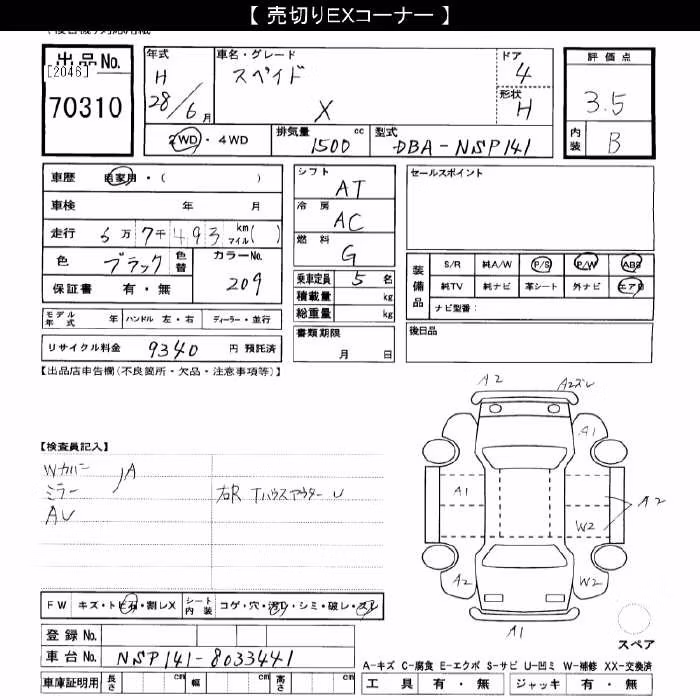 【 売切りEXコーナー 】
出品No.
[2046]
70310
年式
H
28/6月
車名・グレード
スペイド
X
ドア
4
形状
H
評価点
3.5
内装
B
2WD・4WD
排気量
1500 cc
型式
DBA-NSP141
車歴 自家用・( )
車検 年 月
走行 6万7千493 km マイル( )
色 ブラック 色替 カラーNo. 209
保証書 有・無
シフト
AT
冷房
AC
燃料
G
乗車定員 5名
積載量 kg
総重量 kg
書類期限
月 日
セールスポイント
装備品
S/R 純A/W P/S P/W ABS
純TV 純ナビ 革シート 外ナビ エアB
ナビ型番:
後日品
モデル年式 年 ハンドル 左・右 ディーラー・並行
リサイクル料金 9340 円 預託済
【出品店申告欄(不良箇所・欠品・注意事項等)】
【検査員記入】
Wカバー
ミラー
A
AU
右R Tハウスアウター U
A2
A2ズレ
A1
A1
A2
W2
A2
W2
A1
スペア
FW キズ・トビ石・割レX シート内装 コゲ・穴・汚レ・シミ・破レ・スレ
登録No.
車台No. NSP141-8033441
車庫証明用 長さ cm 幅 cm 高さ cm
A-キズ C-腐食 E-エクボ S-サビ U-凹ミ W-補修 XX-交換済
工具 有・無 ジャッキ 有・無